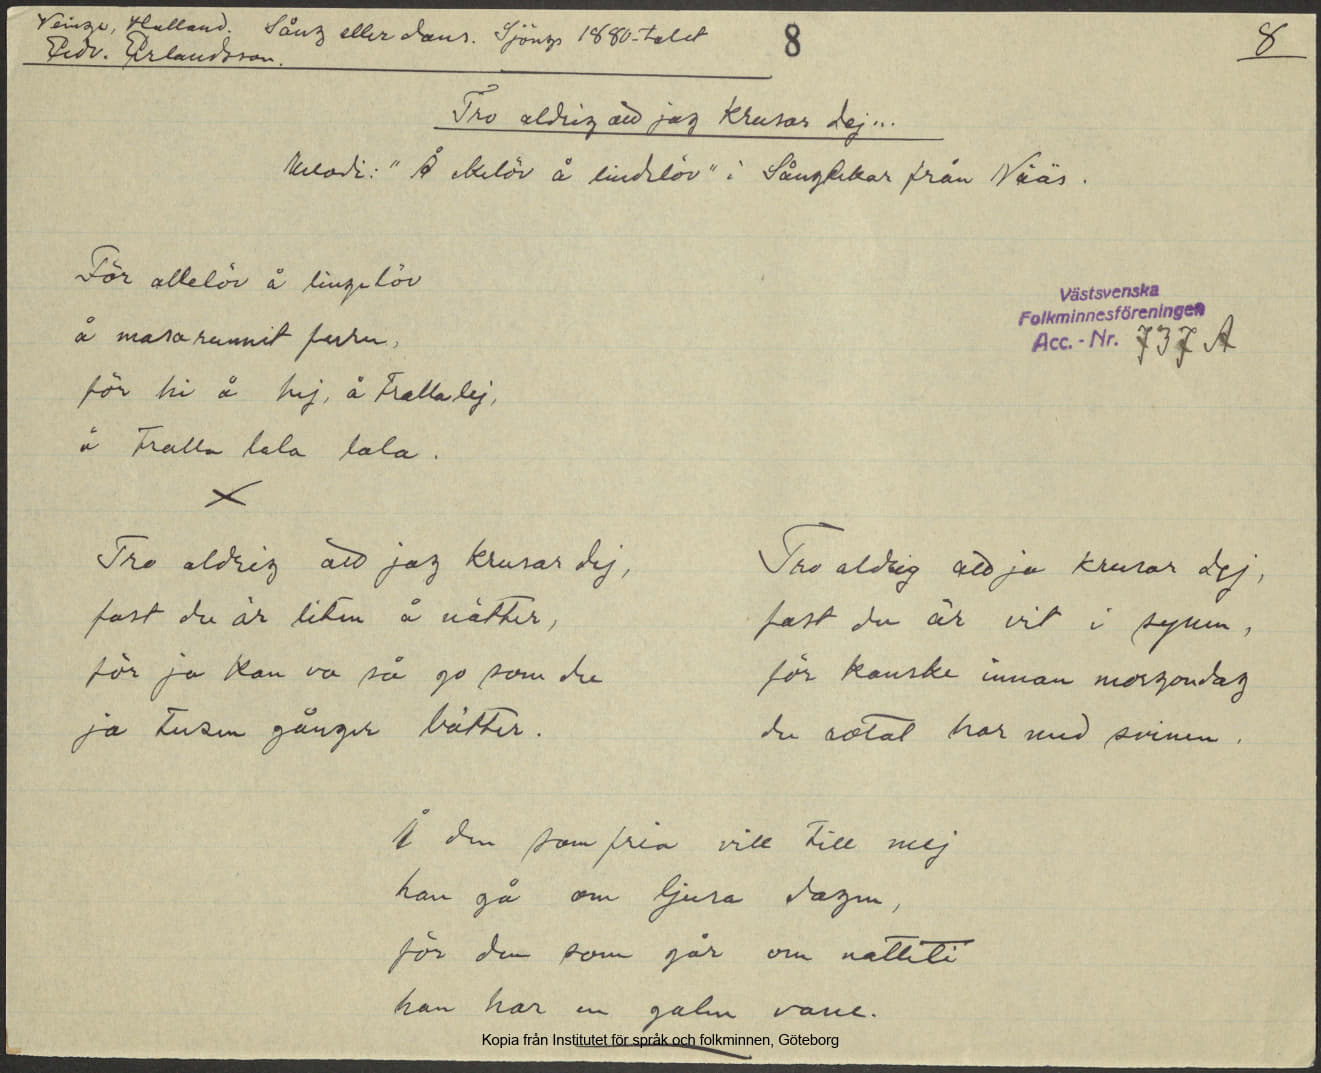 Veinge, Halland. Sång eller dans. Sjöngs 1880-talet
8
8
Edv. Erlandsson.
Tro aldrig att jag krusar dej...
Melodi: " Å ekelöv å lindelöv" i Sånglekar från Nääs.
För allelöv å lingelöv
å masarunnit
för hi å hej, å trallalej,
å tralla lala lala.
Västsvenska
Folkminnesföreningen
Acc. - Nr. 737 A
Tro aldrig att jag krusar dej,
fast du är liten å nätter,
för ja kan va så go som du
ja tusen gånger bätter.
Tro aldrig att ja krusar dej,
fast du är vit i synen,
för kanske innan morgondag
du rotat har med svinen.
Å den som fria vill till mej
han gå om ljusa dagen,
för den som går om natteti
han har en galen vane.
Kopia från Institutet för språk och folkminnen, Göteborg